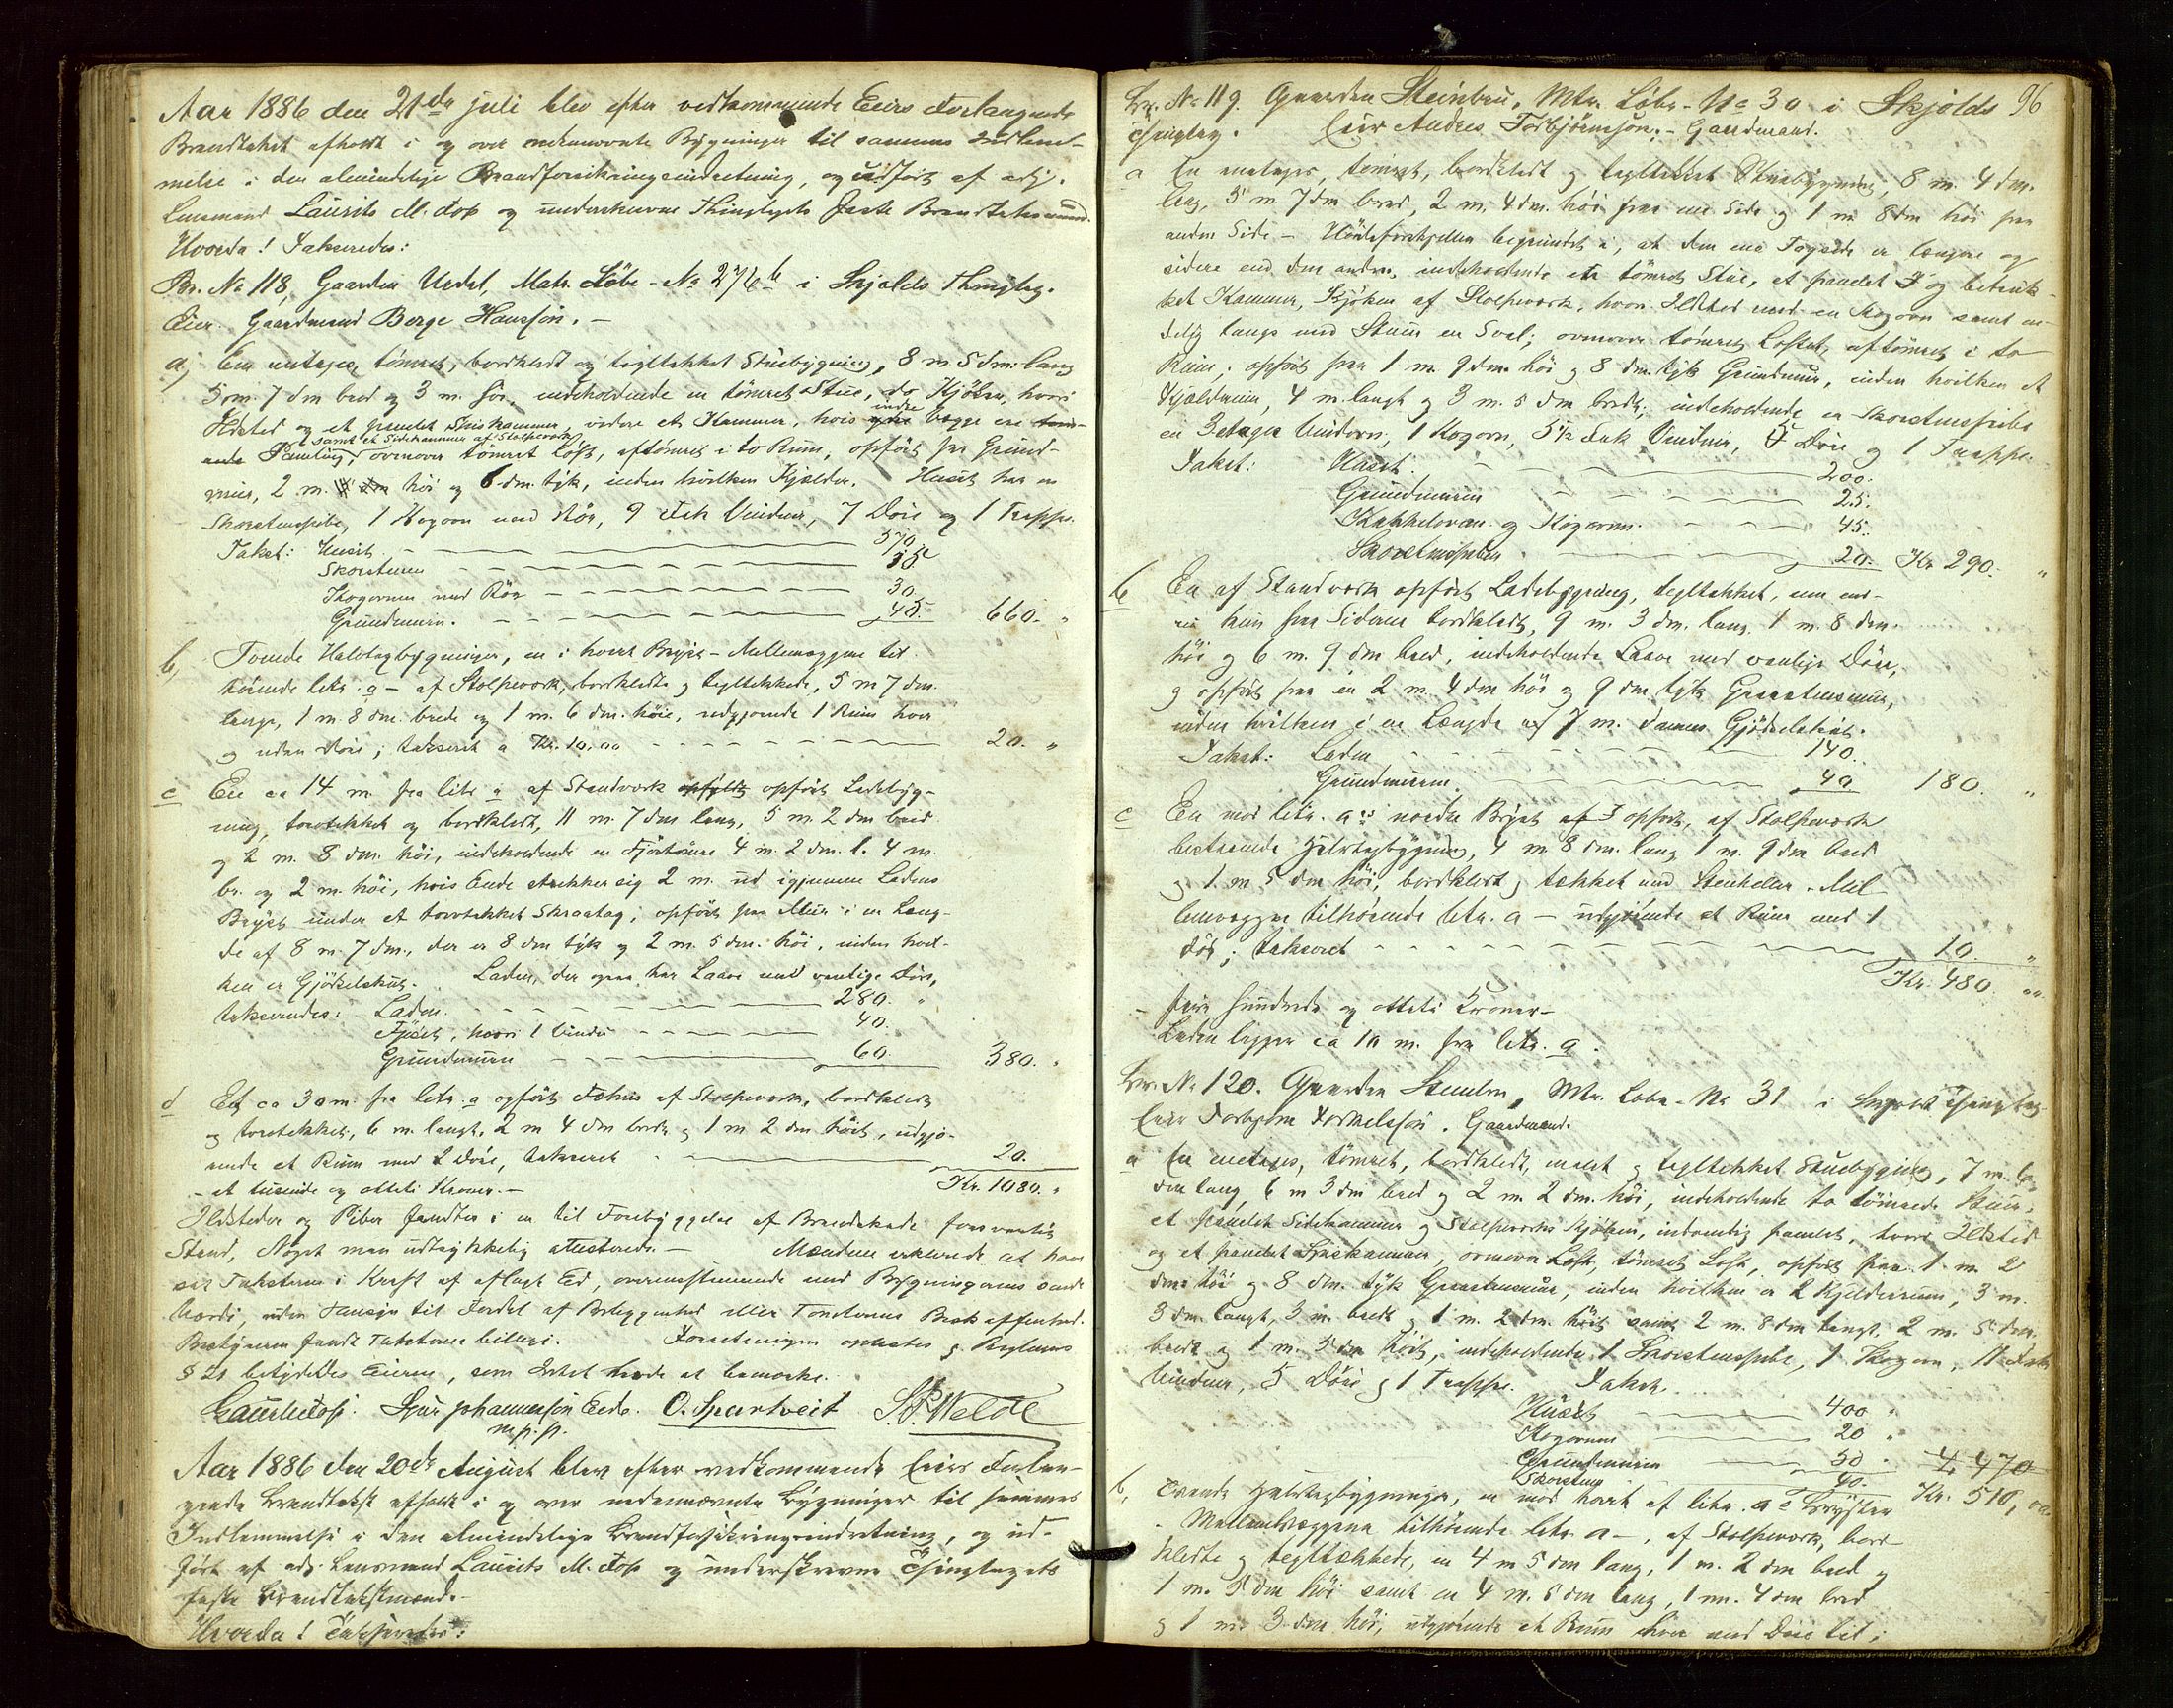 Aar 1886 den 21de juli blev efter vedkommende Eiers Forlangende
Brandtakst afholdt i og over nedennævnte Bygninger til sammes Indlem-
melse i den almindelige Brandforsikringsindretning, og udført af adj.
Lensmand Laurits M. Fos og underskrevne Thinglagets faste Brandtakstmænd.
Hvorda! Takseredes:
Br. No 118, Gaarden Uedal, Matr. Løbe-No 27/6b i Skjolds Thinglag.
Eier Gaardmand Børge Hanssøn. —
a, En enetages, tømret, bordklædt og tegltækket Stuebygning, 8 m 5 dm. lang
5 m. 7 dm bred og 3 m. høi, indeholdende en tømret Stue, do Kjøken, hvori
Ildsted og et panelet Spiskammer, videre et Kammer, hvis indre Vægge ere
samt et Sidekammer af Stolpeværk
Paneling, ovenover tømret Loft, aftømret i to Rum, opført paa Grund-
mur, 2 m. høi og 6 dm. tyk, inden hvilken Kjælder. Huset har en
Skorstenspibe, 1 Kogovn med Rør, 9 Fak Vinduer, 7 Døre og 1 Trappe.
Takst: Huset — 570.
Skorstenen —
Kogovnen med Rør — 30
Grundmuren. — 45. 660. "
b, Tvende Halvtagbygninger, en i hvert Bryst - Mellemvæggene til-
hørende litr. a — af Stolpeværk, bordklædte og tegltækkede, 5 m 7 dm.
lange, 1 m. 8 dm. brede og 1 m. 6 dm. høie, udgjørende 1 Rum hver
og uden Døre; takseret a Kr. 10,00 — 20. "
c En ca 14 m fra litr a af Standværk opført Ladebyg-
ning, torvtækket og bordklædt, 11 m. 7 dm lang, 5 m. 2 dm bred
og 2 m. 8 dm. høi, indeholdende en Fjøstømre 4 m. 2 dm. l. 4 m.
br. og 2 m. høi, hvis Ende strækker sig 2 m. ud igjennem Ladens
Bryst under et torvtækket Skraatag; opført paa Mur i en Læng-
de af 8 m. 7 dm., der er 8 dm tyk og 2 m. 5 dm. høi, inden hvil-
ken er Gjødselshus. Laden, der ogsaa har Laave med vanlige Døre,
takseredes: Laden. — 280. "
Fjøset, hvori 1 Vindu — 40.
Grundmuren — 60. 380. "
d Et ca 30 m. fra litr. a opført Fæhus af Stolpeværk, bordklædt
og torvtækket, 6 m. langt, 2 m 4 dm bredt og 1 m 2 dm høit, udgjø-
rende et Rum med 2 Døre, takseret — 20.
- et tusinde og otteti Kroner. — Kr. 1080. "
Ildsteder og Piber fandtes i en til Forebyggelse af Brandskade forsvarlig
Stand, Noget man udtrykkelig attesterede. — Mændene erklærede at have
sat Taksterne i Kraft af aflagt Ed, overensstemmende med Bygningernes sande
Værdi, uden Hensyn til Fordel af Beliggenhed eller Tomternes Beskaffenhed.
Bestyreren fandt Taksterne billige. Forretningen oplæstes og Reglernes
§ 21 betydedes Eieren, som Intet havde at bemærke.
Laurits Fos. Sjur Johannessøn Eede. O. Spartveit S. P. Welde
m. p. p.
Aar 1886 den 20de August blev efter vedkommende Eiers Forlan-
gende Brandtakst afholdt i og over nedennævnte Bygninger til sammes
Indlemmelse i den almindelige Brandforsikringsindretning, og ud-
ført af adj. Lensmand Laurits M. Fos og underskrevne Thinglagets
faste Brandtakstmænd. —
Hvorda! Taxeredes:
96
Br. No 119. Gaarden Steinbru, Mtr. Løbe-No 30 i Skjolds
Thinglag. Eier Andres Torbjørnsøn. — Gaardmand.
a En enetages, tømret, bordklædt og tegltækket Stuebygning, 8 m. 4 dm.
lang, 5 m. 7 dm bred, 2 m. 4 dm. høi paa ene Side og 1 m 8 dm høi paa
anden Side — Høideforskjellen begrundet i, at den ene Tagside er længere og
sidere end den anden, indeholdende en tømret Stue, et panelet og betruk-
ket Kammer, Kjøken af Stolpeværk, hvori Ildsted med en Kogovn samt en-
delig langs med Stuen en Sval; ovenover tømret Loftet, aftømret i to
Rum; opført paa 1 m. 9 dm. høi og 8 dm. tyk Grundmur, inden hvilken et
Kjælderrum, 4 m. langt og 3 m. 5 dm bredt; indeholdende en Skorstenspibe
en 3 etages Vindovn, 1 Kogovn, 5 1/2 Fak Vinduer, 5 Døre og 1 Trappe.
Takst: Huset. — 200.
Grundmuren — 25.
Kakkelovnen og Kogovnen. — 45.
Skorstenspiben — 20. Kr 290. "
b En af Standværk opført Ladebygning, tegltækket,
kun paa Siderne bordklædt, 9 m. 3 dm. lang 1 m. 8 dm.
høi og 6 m. 9 dm bred, indeholdende Laave med vanlige Døre,
og opført paa en 2 m. 4 dm høi og 9 dm tyk Graastensmur,
inden hvilken i en Længde af 7 m. dannes Gjødselshus.
Takst: Laden — 140.
Grundmuren — 40 180. "
c En mod litr. a's nordre Bryst opført, af Stolpeværk
bestaaende Halvtagbygning, 4 m 8 dm. lang 1 m. 9 dm bred
og 1 m 5 dm høi, bordklædt og tækket med Stenheller. Mel-
lemvæggen tilhørende litr. a — udgjørende et Rum med 1
Dør; takseret — 10. "
Kr. 480. "
— fire hundrede og otteti Kroner —
Laden ligger ca 10 m. fra litr. a.
Br. No 120. Gaarden Steinbru, Mtr. Løbe-No 31 i Skjolds Thinglag
Eier Torbjørn Torkelssøn. Gaardmand.
a En enetages, tømret, bordklædt, malet og tegltækket Stuebygning, 7 m. 6
dm lang, 6 m 3 dm bred og 2 m. 2 dm. høi, indeholdende to tømrede Stuer,
et panelet Sidekammer og Stolpeværks Kjøken, indvendig panelet, hvori Ildsted
og et panelet Spiskammer, ovenover Loft, tømret Loft, opført paa 1 m 2
dm. høi og 8 dm. tyk Graastensmur, inden hvilken er 2 Kjælderrum, 3 m.
3 dm. langt, 3 m bredt og 1 m. 2 dm. høit samt 2 m. 8 dm langt, 2 m. 5 dm.
bredt og 1 m. 5 dm høit, indeholdende 1 Skorstenspibe, 1 Kogovn, 11 Fak
Vinduer, 5 Døre og 1 Trappe. Takst.
Huset — 400 "
Kogovnen — 20 "
Grundmuren — 50 " 470
Skorsten — 40. Kr. 510,
b, Tvende Halvtagbygninger, en mod hvert af litr. a's Bryster
Mellemvæggene tilhørende litr. a —, af Stolpeværk, bord-
klædte og tegltækkede, en 4 m 5 dm lang, 1 m. 2 dm bred og
1 m. 5 dm høi samt en 4 m. 5 dm lang, 1 m. 4 dm bred
og 1 m. 3 dm høi, udgjørende et Rum hver med Døre til;